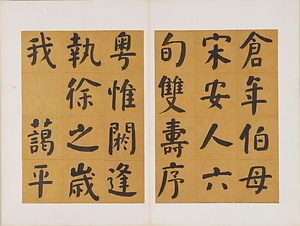 倉年伯母
宋安人六
旬雙壽序
粵惟閼逢
執徐之歲
我 藹平